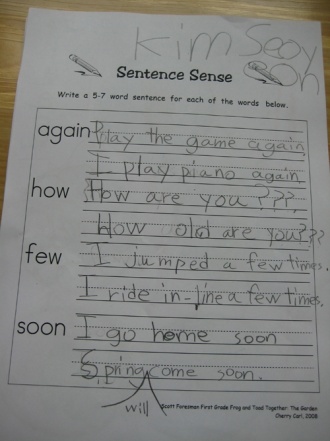 Kim Seoy
eon
Sentence Sense
Write a 5-7 word sentence for each of the words below.
again Play the game again.
I play piano again
how How are you???.
How old are you???
few I jumped a few times.
I ride in-line a few times.
soon I go home soon
Spring come soon.
will
Scott Foresman First Grade Frog and Toad Together: The Garden
Cherry Carl, 2008